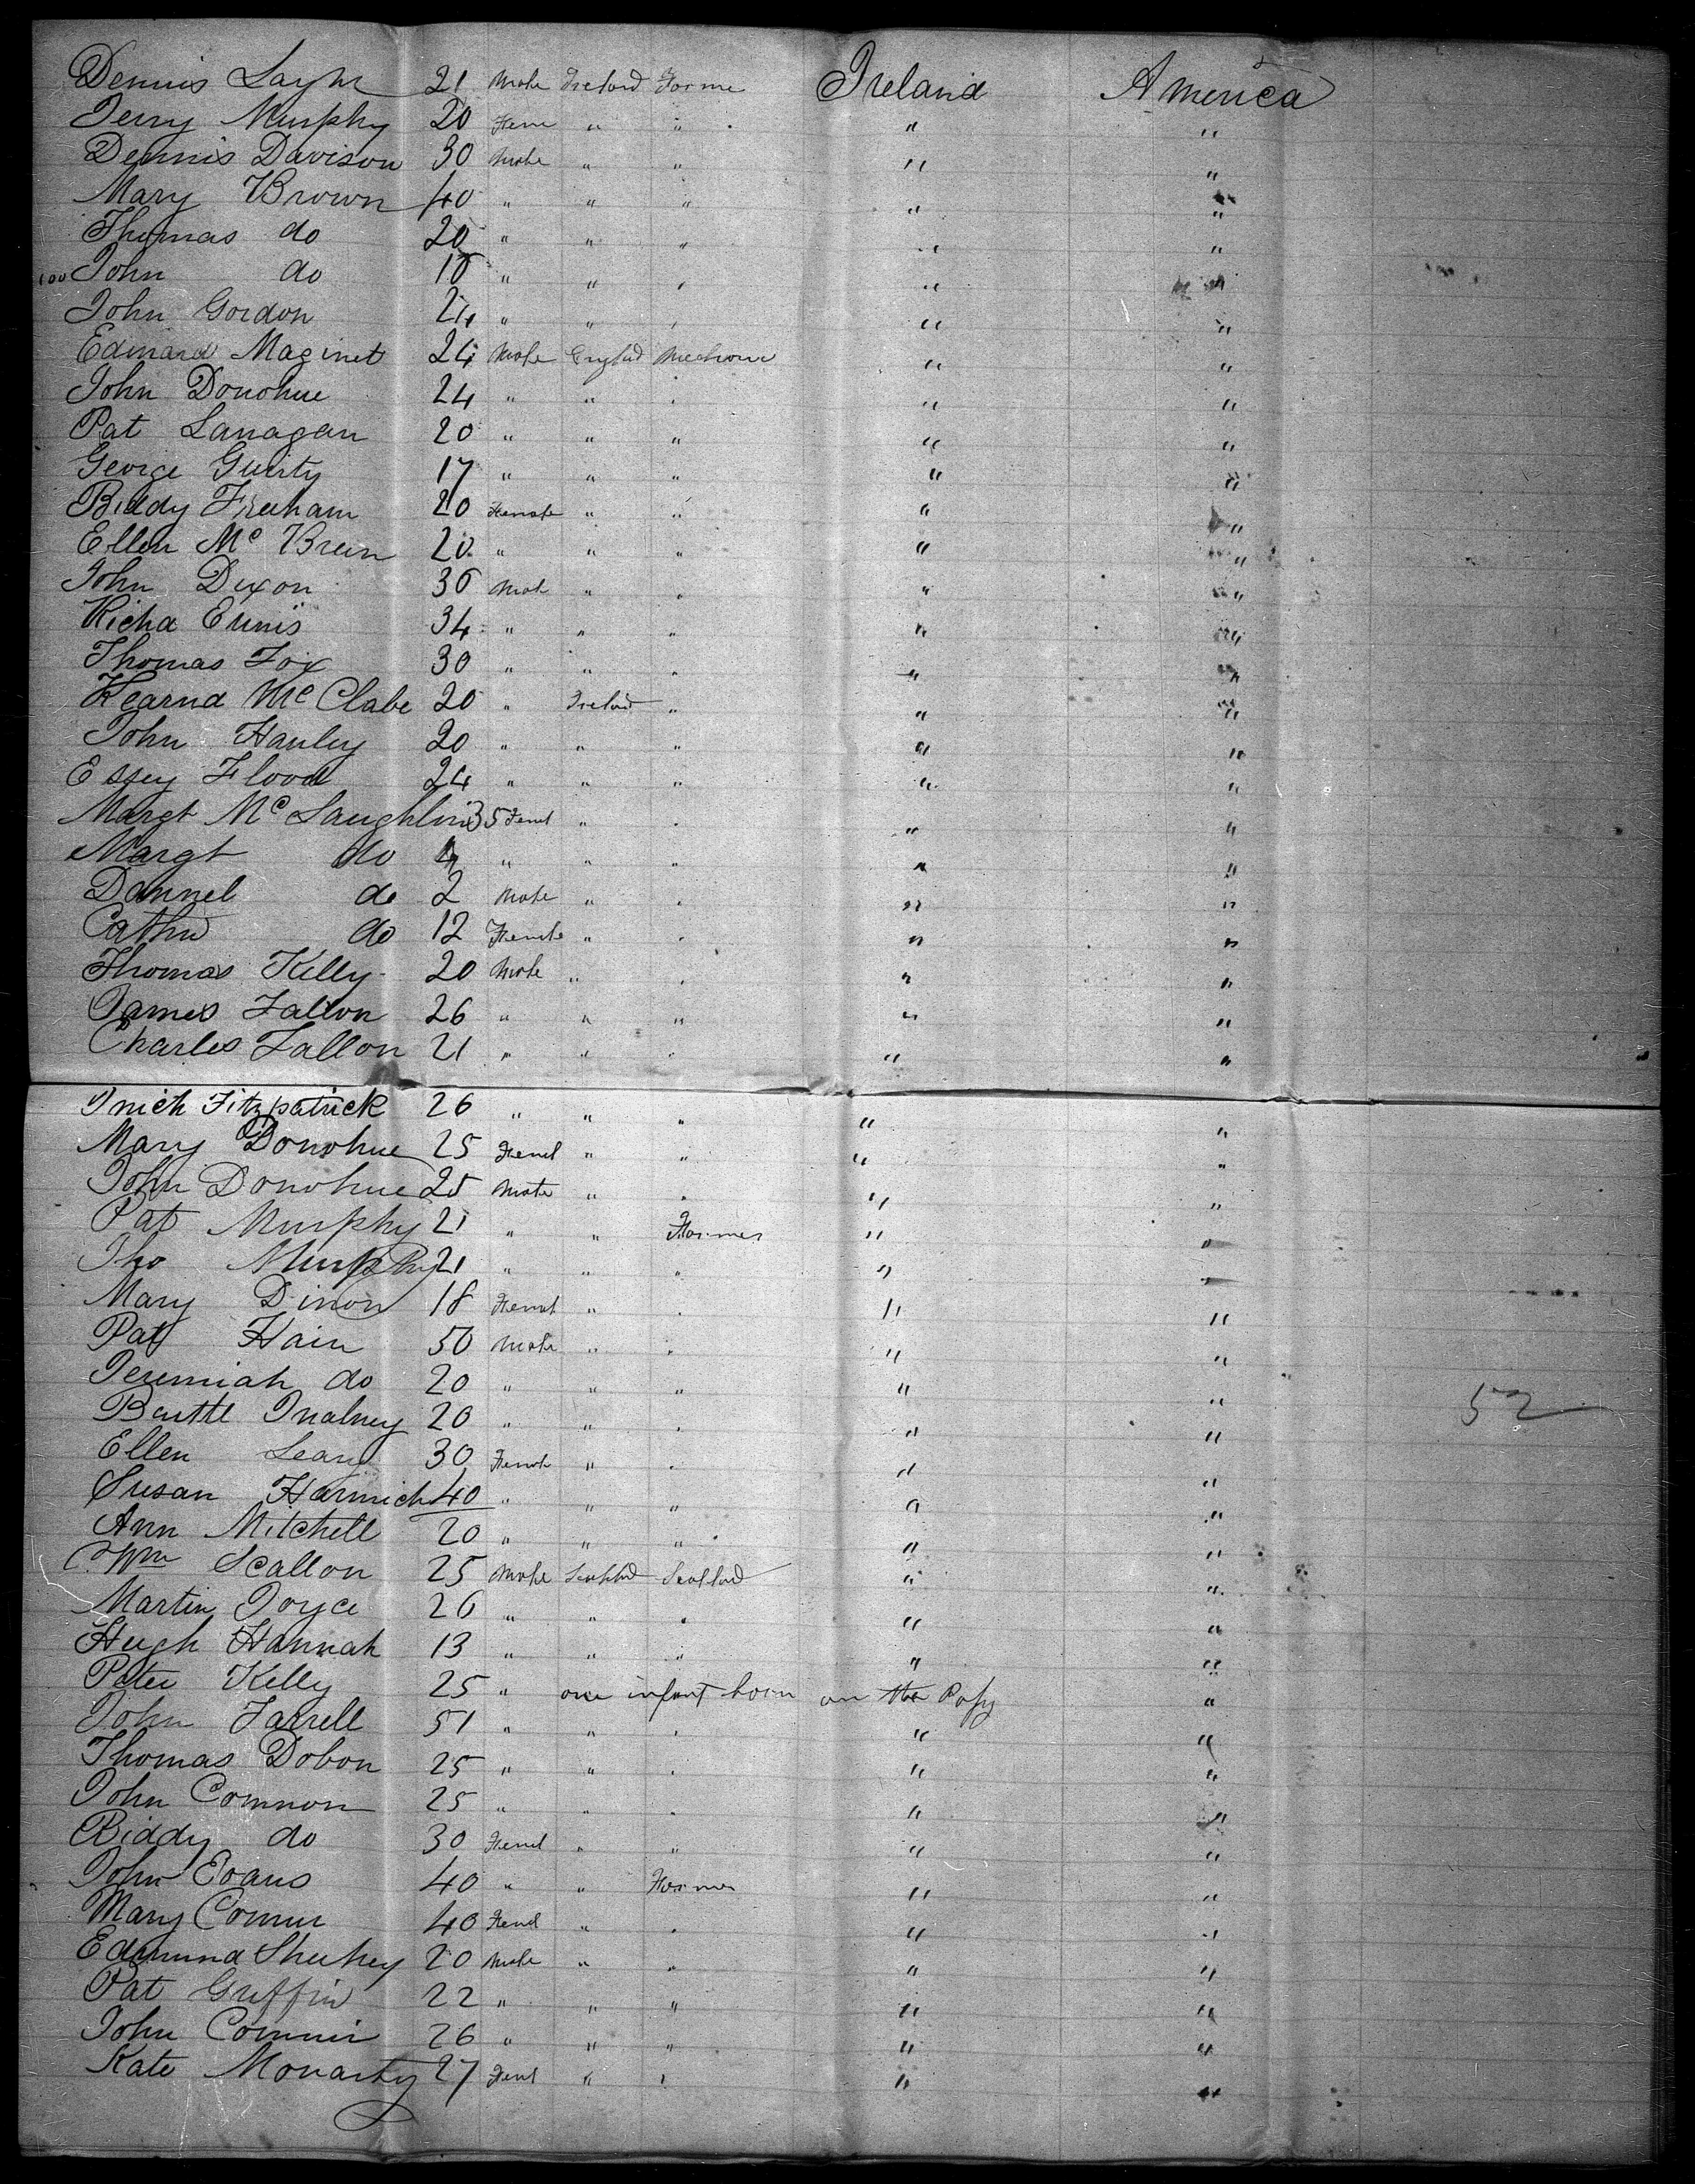 Dennis 21 Male Ireland Farmer Ireland America
Jerry Murphy 20 Fem " " " "
Dennis Davison 30 Male " " " "
Mary Brown 40 " " " " "
Thomas do 20 " " " " "
100 John do " " " " "
John Gordon 24 " " " " "
Edward Maginet 24 Male England Mechanic " "
John Donohue 24 " " " " "
Pat Lanagan 20 " " " " "
George Guirty 17 " " " " "
Biddy 20 Female " " " "
Ellen Mc Breen 20 " " " " "
John Dixon 36 Male " " " "
Richd Ennis 34 " " " " "
Thomas Fox 30 " " " " "
Kearnd McClabe 20 " Ireland " " "
John Hanley 20 " " " " "
Essey Flood 24 " " " " "
Margt McLaughlin 35 Feml " " " "
Margt do 4 " " " " "
Dannel do 2 Male " " " "
do 12 Female " " " "
Thomas Kelly 20 Male " " " "
James Fallon 26 " " " " "
Charles Fallon 21 " " " " "
Fitzpatrick 26 " " " " "
Mary Donohue 25 Feml " " " "
John Donohue 25 Male " " " "
Pat Murphy 21 " " Farmer " "
Tho Murphy 21 " " " " "
Mary Dinon 18 Femal " " " "
Pat Hain 50 Male " " " "
Jeremiah do 20 " " " " "
20 " " " " " 52
Ellen Leary 30 Female " " " "
Susan Harnich 40 " " " " "
Ann Mitchell 20 " " " " "
Wm Scallon 25 Male Scotland Scotland " "
Martin Joyce 26 " " " " "
Hugh Hannah 13 " " " " "
Peter Kelly 25 " one infant born on the "
John Farrell 51 " " " " "
Thomas Dobon 25 " " " " "
John Common 25 " " " " "
Biddy do 30 Feml " " " "
John Evans 40 " " Farmer " "
Mary Connur 40 Feml " " " "
Edmund Sheehey 20 Male " " " "
Pat Griffin 22 " " " " "
John Connir 26 " " " " "
Kate Moriarty 27 Feml " " " "